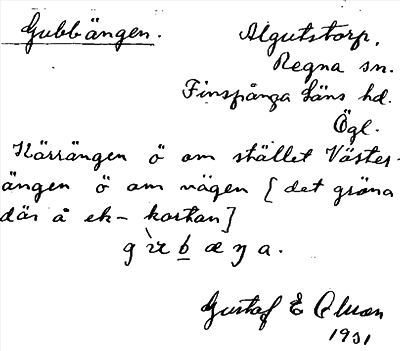 Gubbängen. Algutstorp,
Regna sn.
Finspånga läns hd.
Ögl.
Kärrängen ö om stället Väster-
ängen ö om vägen [det gröna
där å ek-kartan]
Gustaf E
1931